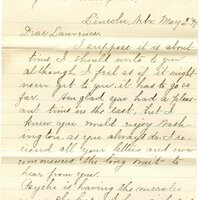 Lincoln, Nebr. May 2
Dear Lawrence:
I suppose it is about
time I should write to you
although I feel as if it might
never get to you it has to go so
far. Am glad you had a pleas-
ant time in the East, but I
knew you would enjoy Wash-
ington, as you always do. I re-
ceived all your letters and now
commences the long wait to
hear from you.
is having the measles